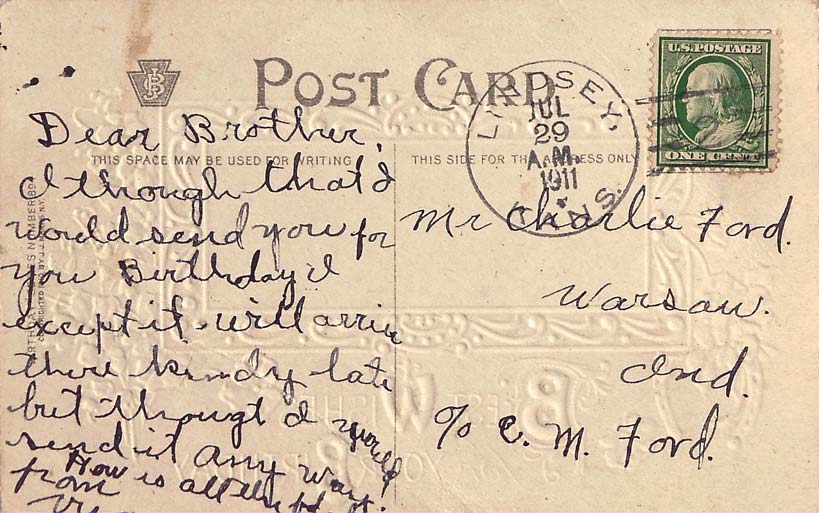 POST CARD
U.S. POSTAGE
ONE CENT
LINDSEY,
JUL
29
A.M.
1911
KANS.
THIS SPACE MAY BE USED FOR WRITING
THIS SIDE FOR THE ADDRESS ONLY
Dear Brother,
I though that I
would send you for
you Birthday I
except it will arrive
there kindy late
but thougt I would
send it any way.
How is all the
from
Mr Charlie Ford.
Warsaw.
Ind.
c/o C. M. Ford.
BEST WISHES
YOUR BIRTHDAY